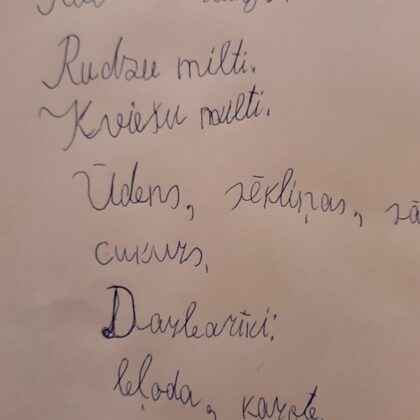 Rudzu milti.
Kviešu milti.
Ūdens, sēkliņas, sā
cukurs,
Darbarīki:
bļoda, karote.